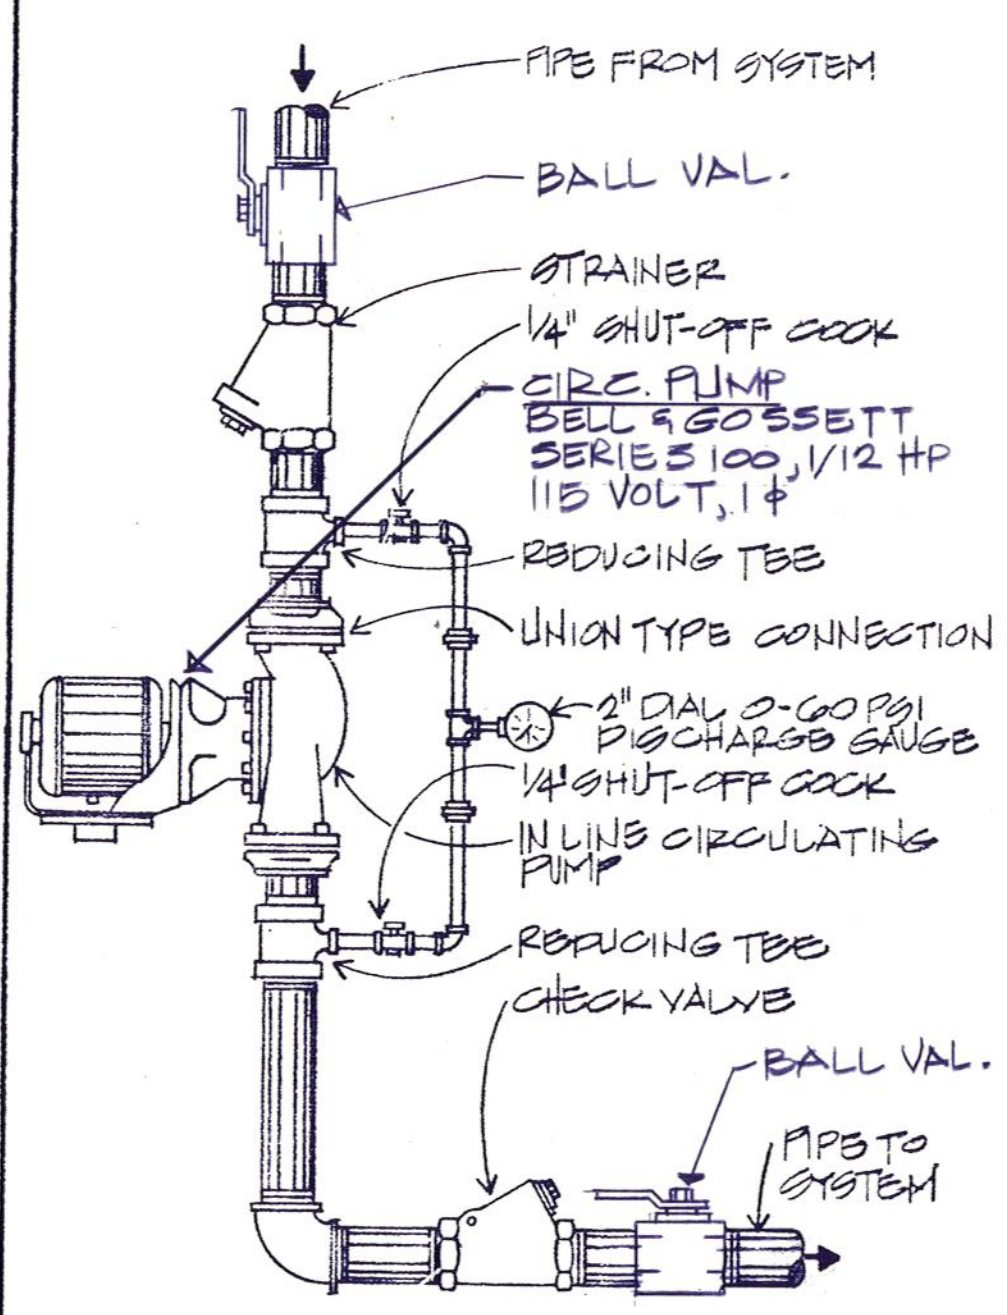 PIPE FROM SYSTEM
BALL VAL.
STRAINER
1/4" SHUT-OFF COCK
CIRC. PUMP
BELL & GOSSETT
SERIES 100, 1/12 HP
115 VOLT, 1 φ
REDUCING TEE
UNION TYPE CONNECTION
2" DIAL 0-60 PSI
DISCHARGE GAUGE
1/4" SHUT-OFF COCK
IN LINE CIRCULATING
PUMP
REDUCING TEE
CHECK VALVE
BALL VAL.
PIPE TO
SYSTEM